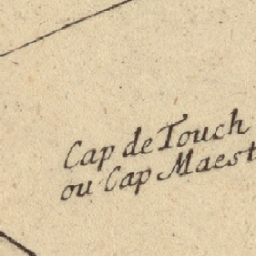 Cap de Touch
ou Cap Maest